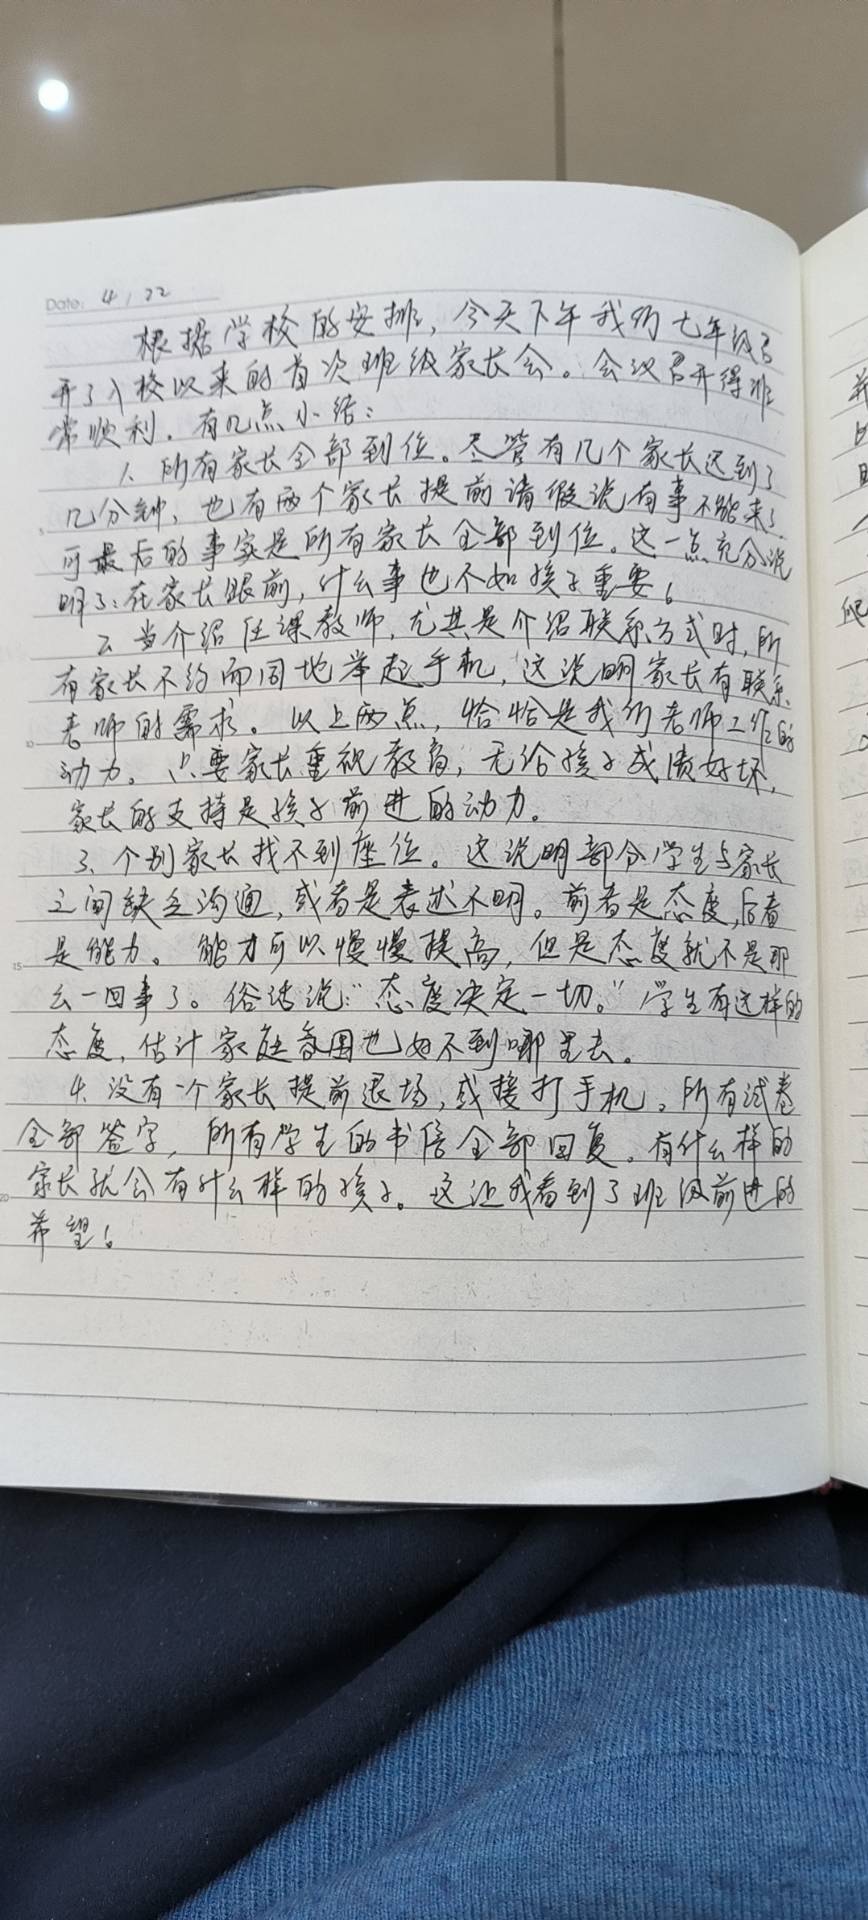 Date: 4 / 22
根据学校的安排，今天下午我们七年级召
开了入校以来的首次班级家长会。会议召开得非
常顺利。有几点小结：
1. 所有家长全部到位。尽管有几个家长迟到了
几分钟，也有两个家长提前请假说有事不能来了，
可最后的事实是所有家长全部到位。这一点充分说
明了：在家长眼前，什么事也不如孩子重要！
2. 当介绍任课教师，尤其是介绍联系方式时，所
有家长不约而同地举起手机，这说明家长有联系
老师的需求。以上两点，恰恰是我们老师工作的
动力。只要家长重视教育，无论孩子成绩好坏，
家长的支持是孩子前进的动力。
3. 个别家长找不到座位。这说明部分学生与家长
之间缺乏沟通，或者是表述不明。前者是态度，后者
是能力。能力可以慢慢提高，但是态度就不是那
么一回事了。俗话说：“态度决定一切。”学生有这样的
态度，估计家庭氛围也好不到哪里去。
4. 没有一个家长提前退场，或接打手机。所有试卷
全部签字，所有学生的书信全部回复。有什么样的
家长就会有什么样的孩子。这让我看到了班级前进的
希望！